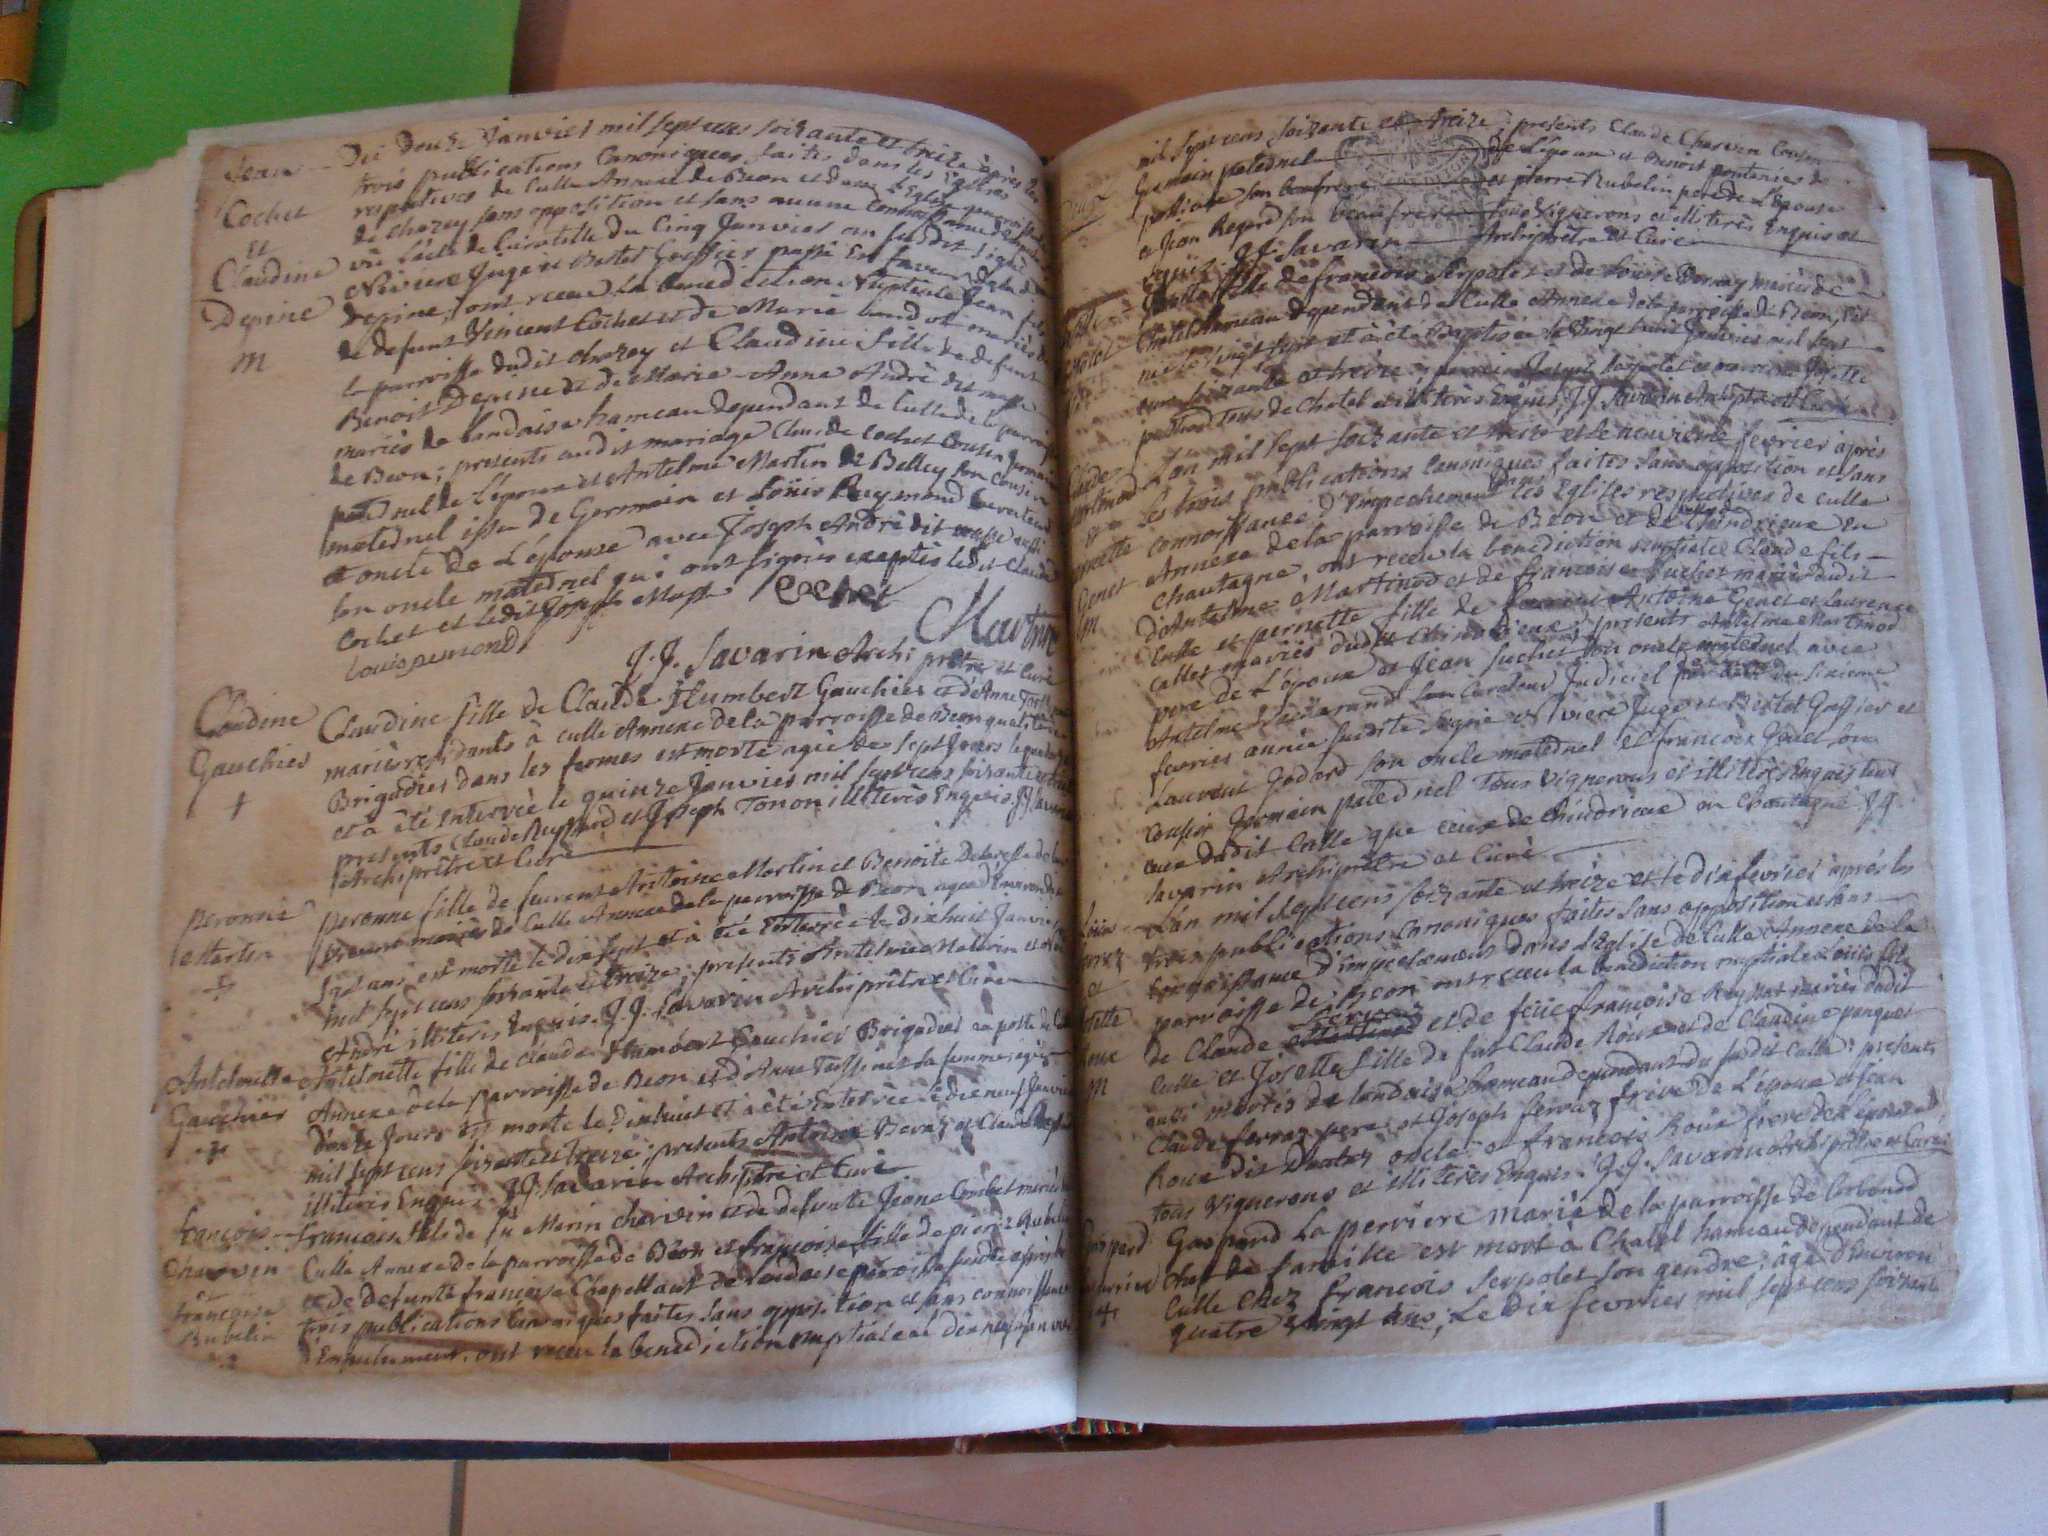 Jean
Cochet
et
Claudine
Depine
M
Du Douze Janvier mil sept cens soixante et treize après les
trois publications Canoniques faites dans les Eglises
respectives de Culle Annexe de Béon et dans l'Eglise
de chazey sans opposition et sans aucune
vû l'acte de Curatelle du Cinq Janvier an susdit signé
Riviere Juge et Bastet Greffier passé En faveur de la d.
Depine, ont receu la benediction Nuptiale Jean fils
de defunt Vincent Cochet et de Marie mariés de
la parroisse dudit chazey et Claudine fille de defunt
Benoit Depine et de Marie-Anne André dit masse
mariés de Landaise hameau dependant de Culle de la parroisse
de Beon; presents audit mariage Claude Cochet Cousin Germain
paternel de l'époux et Antelme Martin de Belley son Cousin
maternel issu de Germain et Loüis Reymond
et oncle de L'épouse avec Joseph André dit masse aussi
son oncle maternel qui ont signés exceptés ledit Claude
Cochet et ledit Joseph Masse Cochet Martin
Louis remond
J. J. Savarin Archiprêtre et Curé
Claudine
Gauchier
+
Claudine fille de Claude Humbert Gauchier et d'Anne
mariés residants à Culle Annexe de la parroisse de Beon qualité de
Brigadier dans les fermes est morte agée de sept Jours le quatorze
et a été Enterrée le quinze Janvier mil sept cens soixante et treize
presents Claude Reyssard et Joseph Tonon illiterés Enquis. J. J. Savarin
Archiprêtre et Curé
peronne
Martin
+
peronne fille de Antoine Martin et Benoite
mariés de Culle Annexe de la parroisse de Béon agée d'Environ
ans est morte le dix sept et a été Enterrée le dix huit Janvier
mil sept cens soixante et treize; presents Antelme et
André illiterés Enquis. J. J. Savarin Archiprêtre et Curé
Antelmette
Gauchier
+
Antelmette fille de Claude Humbert Gauchier Brigadier au poste de Culle
Annexe de la parroisse de Béon et d'Anne sa femme agée
de douze Jours est morte le Dix huit et a été Enterrée le dix neuf Janvier
mil sept cens soixante et treize: presents Antoine et Claude
illiterés Enquis J. J. Savarin Archiprêtre et Curé
françois
Charvin
et
françoise
Rubelin
francois fils de fû Marin Charvin et de defunte Jeane Combet mariés de
Culle Annexe de la parroisse de Béon et françoise fille de pierre Rubelin
et de defunte françoise Chapellant de Landaise paroisse susdite après les
trois publications Canoniques faites sans opposition et sans connoissance
d'Empechement, ont receu la benediction nuptiale le dix neuf Janvier
mil sept cens soixante et treize: presents Claude Charvin Cousin
Germain paternel de L'époux et Benoit
son beaufrere et pierre Rubelin pere de L'épouse
et Jean Regard son beaufrere tous Vignerons et illiterés Enquis et
J. J. Savarin Archiprêtre et Curé
fille de francois Serpolet et de Loüise mariés de
Chatel hameau dependant de Culle Annexe de la parroisse de Béon, est
née le vingt sept et a été Baptisée le Vingt huit Janvier mil sept
cens soixante et treize; parrain Joseph Serpolet et marraine Josette
tous de Chatel et illiterés Enquis, J. J. Savarin Archiptre et Curé
Claude
Martinod
et
pernette
Genet
M
L'an mil sept soixante et treize et le neuvieme fevrier après
Les trois publications Canoniques faites sans opposition et sans
connoissance d'Empechement dans les Eglises respectives de Culle
Annéxe de la parroisse de Béon et de Chindrieux en
Chautagne, ont receu la benediction nuptiale Claude fils
d'Antelme Martinod et de francoise Suchet mariés dudit
Culle et pernette fille de Antoine Genet et Laurence
Callet mariés dudit Chindrieux: presents Antelme Martinod
pere de L'époux et Jean Suchet son oncle maternel avec
Antelme son Curateur Judiciel du sixieme
fevrier année susdite signé Riviere Juge et Bastet Greffier et
Laurent Jodard son oncle maternel et francois Genet son
cousin Germain paternel tous Vignerons et illiterés Enquis tant
ceux dudit Culle que ceux de Chindrieux en Chautagne J. J.
Savarin Archiprêtre et Curé
Loüis
ferraz
et
Josette
Roux
M
L'an mil sept cens soixante et treize et le dix fevrier après les
trois publications Canoniques faites sans opposition et sans
connoissance d'Empechement dans L'Eglise de Culle Annexe de la
parroisse de Béon ont receu la benediction nuptiale Loüis fils
de Claude ferraz et de feüe françoise Reyssat mariés dudit
Culle et Josette fille de fut Claude Roux et de Claudine panquet
aussi mariés de Landaise hameau dependant du susdit Culle: presents
Claude ferraz pere et Joseph ferraz frere de L'époux et Jean
Roux dit oncle et francois Roux frere de L'épouse
tous Vignerons et illiterés Enquis. J. J. Savarin Archiprêtre et Curé
Gaspard
+
Gaspard La perriere marié de la parroisse de Corbonod
chef de famille est mort à Chatel hameau dependant de
Culle chez François Serpolet son gendre; agé d'Environ
quatre vingt ans, Le dix fevrier mil sept cens soixante